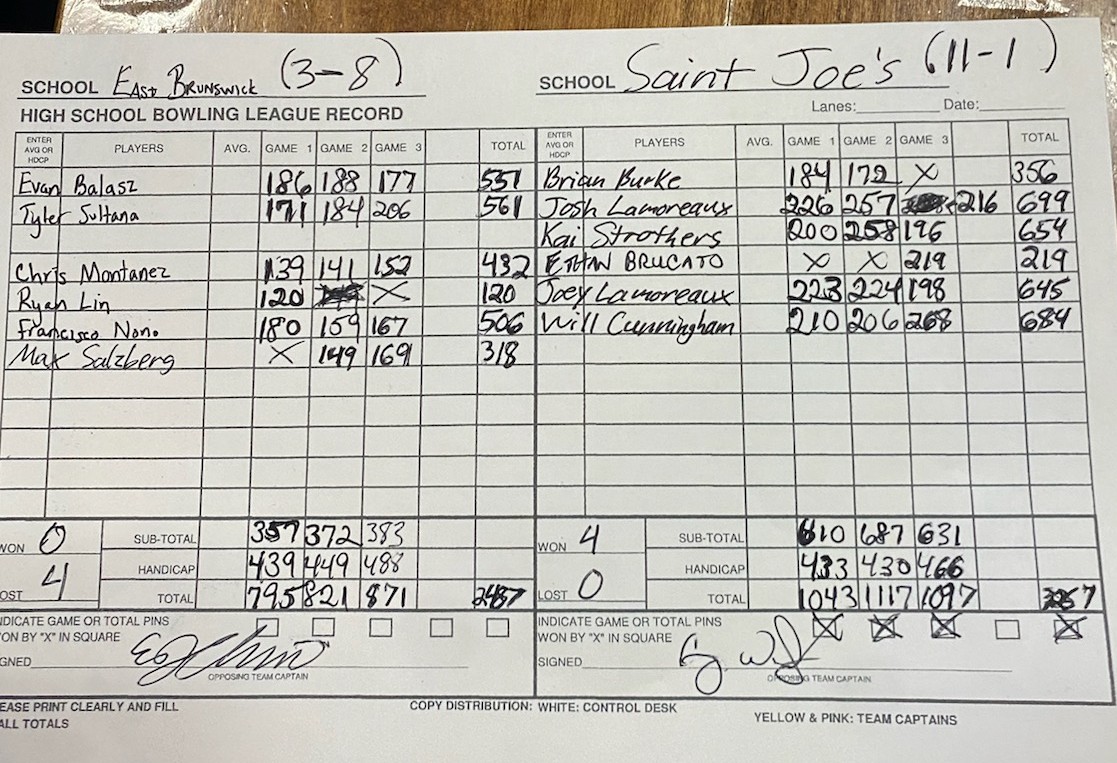 SCHOOL East Brunswick (3-8)
SCHOOL Saint Joe's (11-1)
HIGH SCHOOL BOWLING LEAGUE RECORD
Lanes: Date:
ENTER AVG OR HDCP PLAYERS AVG. GAME 1 GAME 2 GAME 3 TOTAL
ENTER AVG OR HDCP PLAYERS AVG. GAME 1 GAME 2 GAME 3 TOTAL
Evan Balasz 186 188 177 551
Brian Burke 184 172 X 356
Tyler Sultana 171 184 206 561
Josh Lamoreaux 226 257 216 699
Kai Strothers 200 258 196 654
Chris Montanez 139 141 152 432
ETHAN BRUCATO X X 219 219
Ryan Lin 120 X 120
Joey Lamoreaux 223 224 198 645
Francisco Nono 180 159 167 506
Will Cunningham 210 206 268 684
Max Salzberg X 149 169 318
WON 0 SUB-TOTAL 357 372 383
WON 4 SUB-TOTAL 610 687 631
HANDICAP 439 449 488
HANDICAP 433 430 466
LOST 4 TOTAL 795 821 871 2487
LOST 0 TOTAL 1043 1117 1097 3257
NDICATE GAME OR TOTAL PINS
ON BY "X" IN SQUARE
INDICATE GAME OR TOTAL PINS
WON BY "X" IN SQUARE
GNED
OPPOSING TEAM CAPTAIN
SIGNED
OPPOSING TEAM CAPTAIN
EASE PRINT CLEARLY AND FILL
ALL TOTALS
COPY DISTRIBUTION: WHITE: CONTROL DESK
YELLOW & PINK: TEAM CAPTAINS